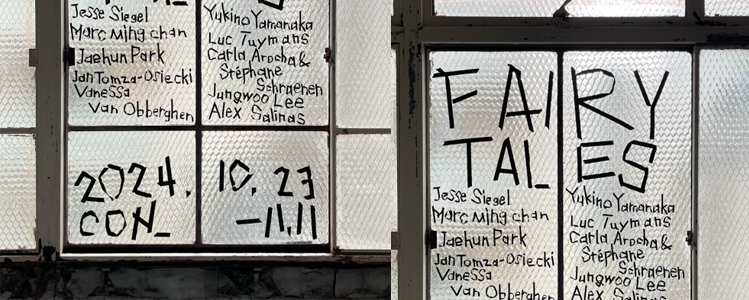 Jesse Siegel
Marc Ming chan
Jaehun Park
Jan Tomza-Osiecki
Vanessa
Van Obberghen
Yukino Yamanaka
Luc Tuymans
Carla Arocha &
Stéphane
Schraenen
Jungwoo Lee
Alex Salinas
2024. 10. 23
CON_ -11.11
FAIRY
TALES
Jesse Siegel
Marc Ming chan
Jaehun Park
Jan Tomza-Osiecki
Vanessa
Van Obberghen
Yukino Yamanaka
Luc Tuymans
Carla Arocha &
Stéphane
Schraenen
Jungwoo Lee
Alex Salinas